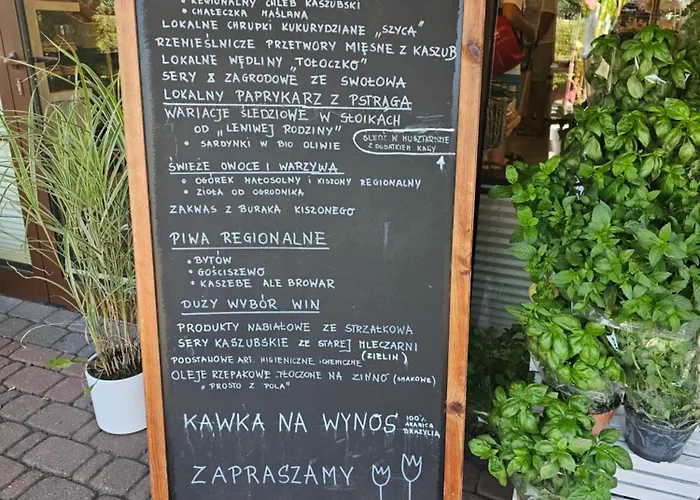 • REGIONALNY CHLEB KASZUBSKI
• CHAŁECZKA MAŚLANA
LOKALNE CHRUPKI KUKURYDZIANE „SZYCA"
RZEMIEŚLNICZE PRZETWORY MIĘSNE Z KASZUB
LOKALNE WĘDLINY „TOŁOCZKO"
SERY ZAGRODOWE ZE SWOŁOWA
LOKALNY PAPRYKARZ Z PSTRĄGA
WARIACJE ŚLEDZIOWE W SŁOIKACH
OD „LENIWEJ RODZINY"
ŚLEDŹ W MUSZTARDZIE
Z DODATKIEM KAWY
• SARDYNKI W BIO OLIWIE
ŚWIEŻE OWOCE I WARZYWA
• OGÓREK MAŁOSOLNY I KISZONY REGIONALNY
• ZIOŁA OD OGRODNIKA
ZAKWAS Z BURAKA KISZONEGO
PIWA REGIONALNE
• BYTÓW
• GOŚCISZEWO
• KASZEBE ALE BROWAR
DUŻY WYBÓR WIN
PRODUKTY NABIAŁOWE ZE STRZAŁKOWA
SERY KASZUBSKIE ZE STAREJ MLECZARNI
PODSTAWOWE ART. HIGIENICZNE (ZIELIN)
OLEJE RZEPAKOWE TŁOCZONE NA ZIMNO (SMAKOWE)
„PROSTO Z POLA"
KAWKA NA WYNOS 100% ARABICA BRAZYLIA
ZAPRASZAMY